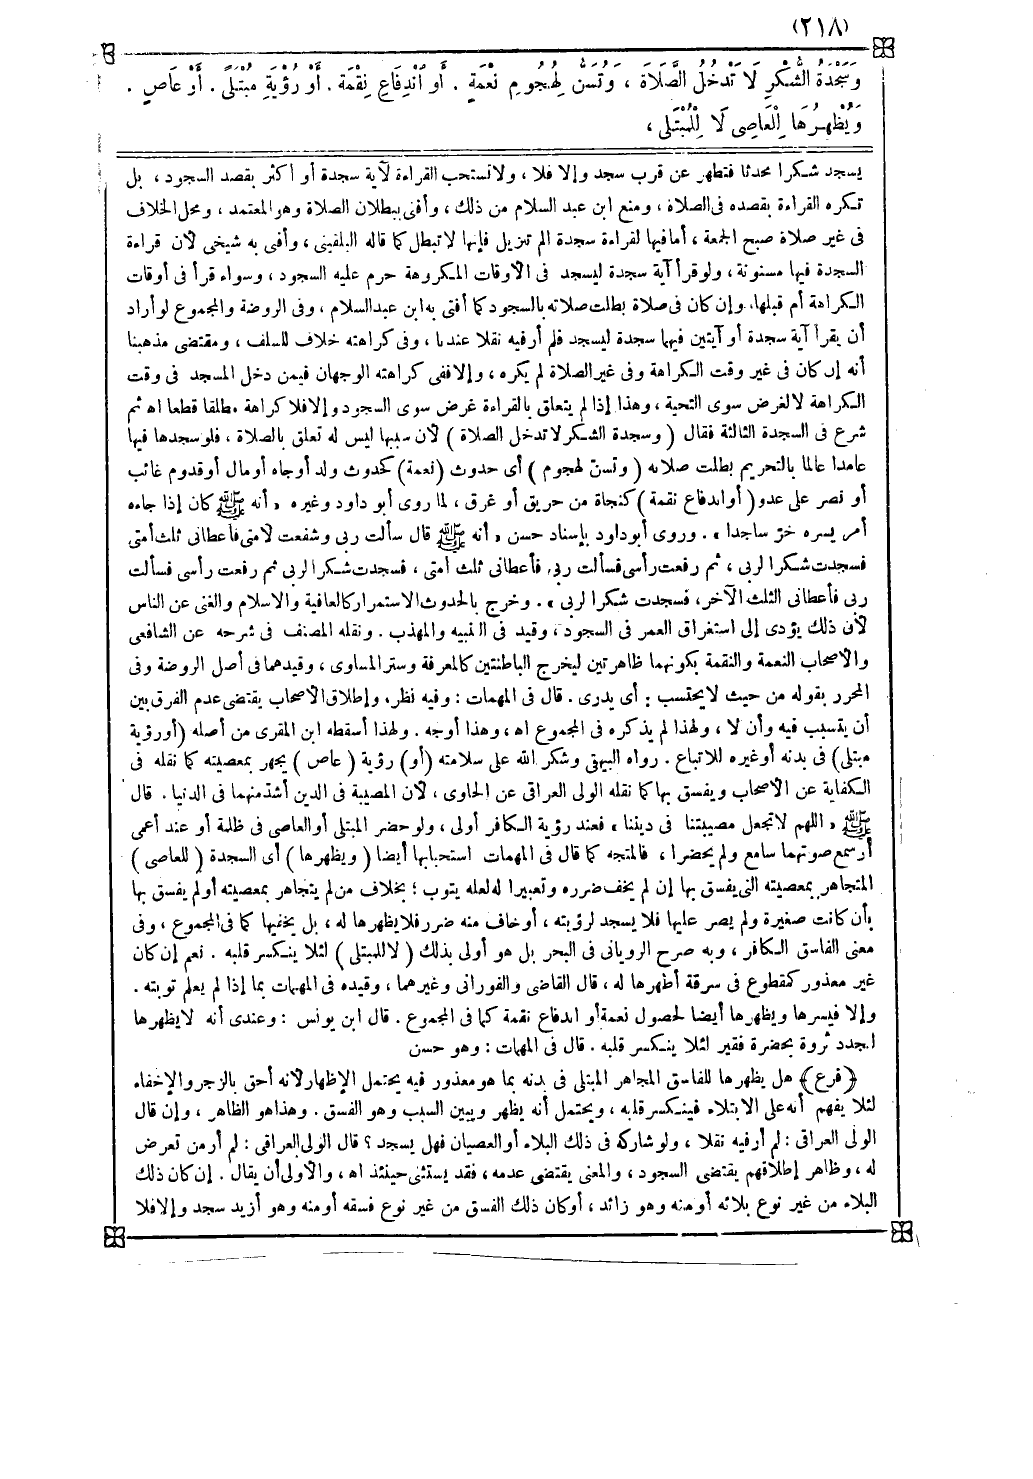 (٢١٨)
وَسَجْدَةُ الشُّكْرِ لَا تَدْخُلُ الصَّلَاةَ ، وَتُسَنُّ لِهُجُومِ نِعْمَةٍ . أَوِ انْدِفَاعِ نِقْمَة . أَوْ رُؤْيَةِ مُبْتَلًى . أَوْ عَاصٍ .
وَيُظْهِرُهَا لِلْعَاصِى لَا لِلْمُبْتَلَى ،
يسجد شكرا محدثا فتطهر عن قرب سجد وإلا فلا ، ولا تستحب القراءة لآية سجدة أو أكثر بقصد السجود ، بل
تكره القراءة بقصده فى الصلاة ، ومنع ابن عبد السلام من ذلك ، وأفتى ببطلان الصلاة وهو المعتمد ، ومحل الخلاف
فى غير صلاة صبح الجمعة ، أما فيها لقراءة سجدة الم تنزيل فإنها لا تبطل كما قاله البلقينى ، وأفتى به شيخى لأن قراءة
السجدة فيها مسنونة ، ولو قرأ آية سجدة ليسجد فى الأوقات المكروهة حرم عليه السجود ، وسواء قرأ فى أوقات
الكراهة أم قبلها. وإن كان فى صلاة بطلت صلاته بالسجود كما أفتى به ابن عبدالسلام ، وفى الروضة والمجموع لو أراد
أن يقرأ آية سجدة أو آيتين فيها سجدة ليسجد فلم أر فيه نقلا عندنا ، وفى كراهته خلاف للسلف ، ومقتضى مذهبنا
أنه إن كان فى غير وقت الكراهة وفى غير الصلاة لم يكره ، وإلا ففى كراهته الوجهان فيمن دخل المسجد فى وقت
الكراهة لا لغرض سوى التحية ، وهذا إذا لم يتعلق بالقراءة غرض سوى السجود وإلا فلا كراهة مطلقا قطعا اه ثم
شرع فى السجدة الثالثة فقال ( وسجدة الشكر لا تدخل الصلاة ) لأن سببها ليس له تعلق بالصلاة ، فلو سجدها فيها
عامدا عالما بالتحريم بطلت صلاته ( وتسن لهجوم ) أى حدوث (نعمة) كحدوث ولد أو جاه أو مال أو قدوم غائب
أو نصر على عدو ( أو اندفاع نقمة ) كنجاة من حريق أو غرق ، لما روى أبو داود وغيره « أنه ﷺ كان إذا جاءه
أمر يسره خر ساجدا » . وروى أبوداود بإسناد حسن « أنه ﷺ قال سألت ربى وشفعت لأمتى فأعطانى ثلث أمتى
فسجدت شكرا لربى ، ثم رفعت رأسى فسألت ربى فأعطانى ثلث أمتى ، فسجدت شكرا لربى ثم رفعت رأسى فسألت
ربى فأعطانى الثلث الآخر، فسجدت شكرا لربى » . وخرج بالحدوث الاستمرار كالعافية والاسلام والغنى عن الناس
لأن ذلك يؤدى إلى استغراق العمر فى السجود ، وقيد فى التنبيه والمهذب . ونقله المصنف فى شرحه عن الشافعى
والأصحاب النعمة والنقمة بكونهما ظاهرتين ليخرج الباطنتين كالمعرفة وستر المساوى ، وقيدهما فى أصل الروضة وفى
المحرر بقوله من حيث لا يحتسب : أى يدرى . قال فى المهمات : وفيه نظر، وإطلاق الأصحاب يقتضى عدم الفرق بين
أن يتسبب فيه وأن لا ، ولهذا لم يذكره فى المجموع اه ، وهذا أوجه . ولهذا أسقطه ابن المقرى من أصله (أو رؤية
مبتلى) فى بدنه أو غيره للاتباع . رواه البيهقى وشكر الله على سلامته (أو) رؤية ( عاص ) يجهر بمعصيته كما نقله فى
الكفاية عن الأصحاب ويفسق بها كما نقله الولى العراقى عن الحاوى ، لأن المصيبة فى الدين أشد منهما فى الدنيا . قال
ﷺ « اللهم لا تجعل مصيبتنا فى ديننا » فعند رؤية الكافر أولى ، ولو حضر المبتلى أو العاصى فى ظلمة أو عند أعمى
أو سمع صوتهما سامع ولم يحضرا ، فالمتجه كما قال فى المهمات استحبابها أيضا ( ويظهرها ) أى السجدة ( للعاصى )
المتجاهر بمعصيته التى يفسق بها إن لم يخف ضرره وتعييرا له لعله يتوب ؛ بخلاف من لم يتجاهر بمعصيته أو لم يفسق بها
بأن كانت صغيرة ولم يصر عليها فلا يسجد لرؤيته ، أو خاف منه ضررا فلا يظهرها له ، بل يخفيها كما فى المجموع ، وفى
معنى الفاسق الكافر ، وبه صرح الرويانى فى البحر بل هو أولى بذلك ( لا للمبتلى ) لئلا ينكسر قلبه . نعم إن كان
غير معذور كمقطوع فى سرقة أظهرها له ، قال القاضى والفورانى وغيرهما ، وقيده فى المهمات بما إذا لم يعلم توبته .
وإلا فيسرها ويظهرها أيضا لحصول نعمة أو اندفاع نقمة كما فى المجموع . قال ابن يونس : وعندى أنه لا يظهرها
لتجدد ثروة بحضرة فقير لئلا ينكسر قلبه . قال فى المهمات : وهو حسن
(فرع) هل يظهرها للفاسق المجاهر المبتلى فى بدنه بما هو معذور فيه يحتمل الإظهار لأنه أحق بالزجر والإخفاء
لئلا يفهم أنه على الابتلاء فينكسر قلبه ، ويحتمل أنه يظهر ويبين السبب وهو الفسق . وهذا هو الظاهر ، وإن قال
الولى العراقى : لم أر فيه نقلا ، ولو شاركه فى ذلك البلاء أو العصيان فهل يسجد ؟ قال الولى العراقى : لم أر من تعرض
له ، وظاهر إطلاقهم يقتضى السجود ، والمعنى يقتضى عدمه ، فقد يستثنى حينئذ اه ، والأولى أن يقال . إن كان ذلك
البلاء من غير نوع بلائه أو منه وهو زائد ، أو كان ذلك الفسق من غير نوع فسقه أو منه وهو أزيد سجد وإلا فلا